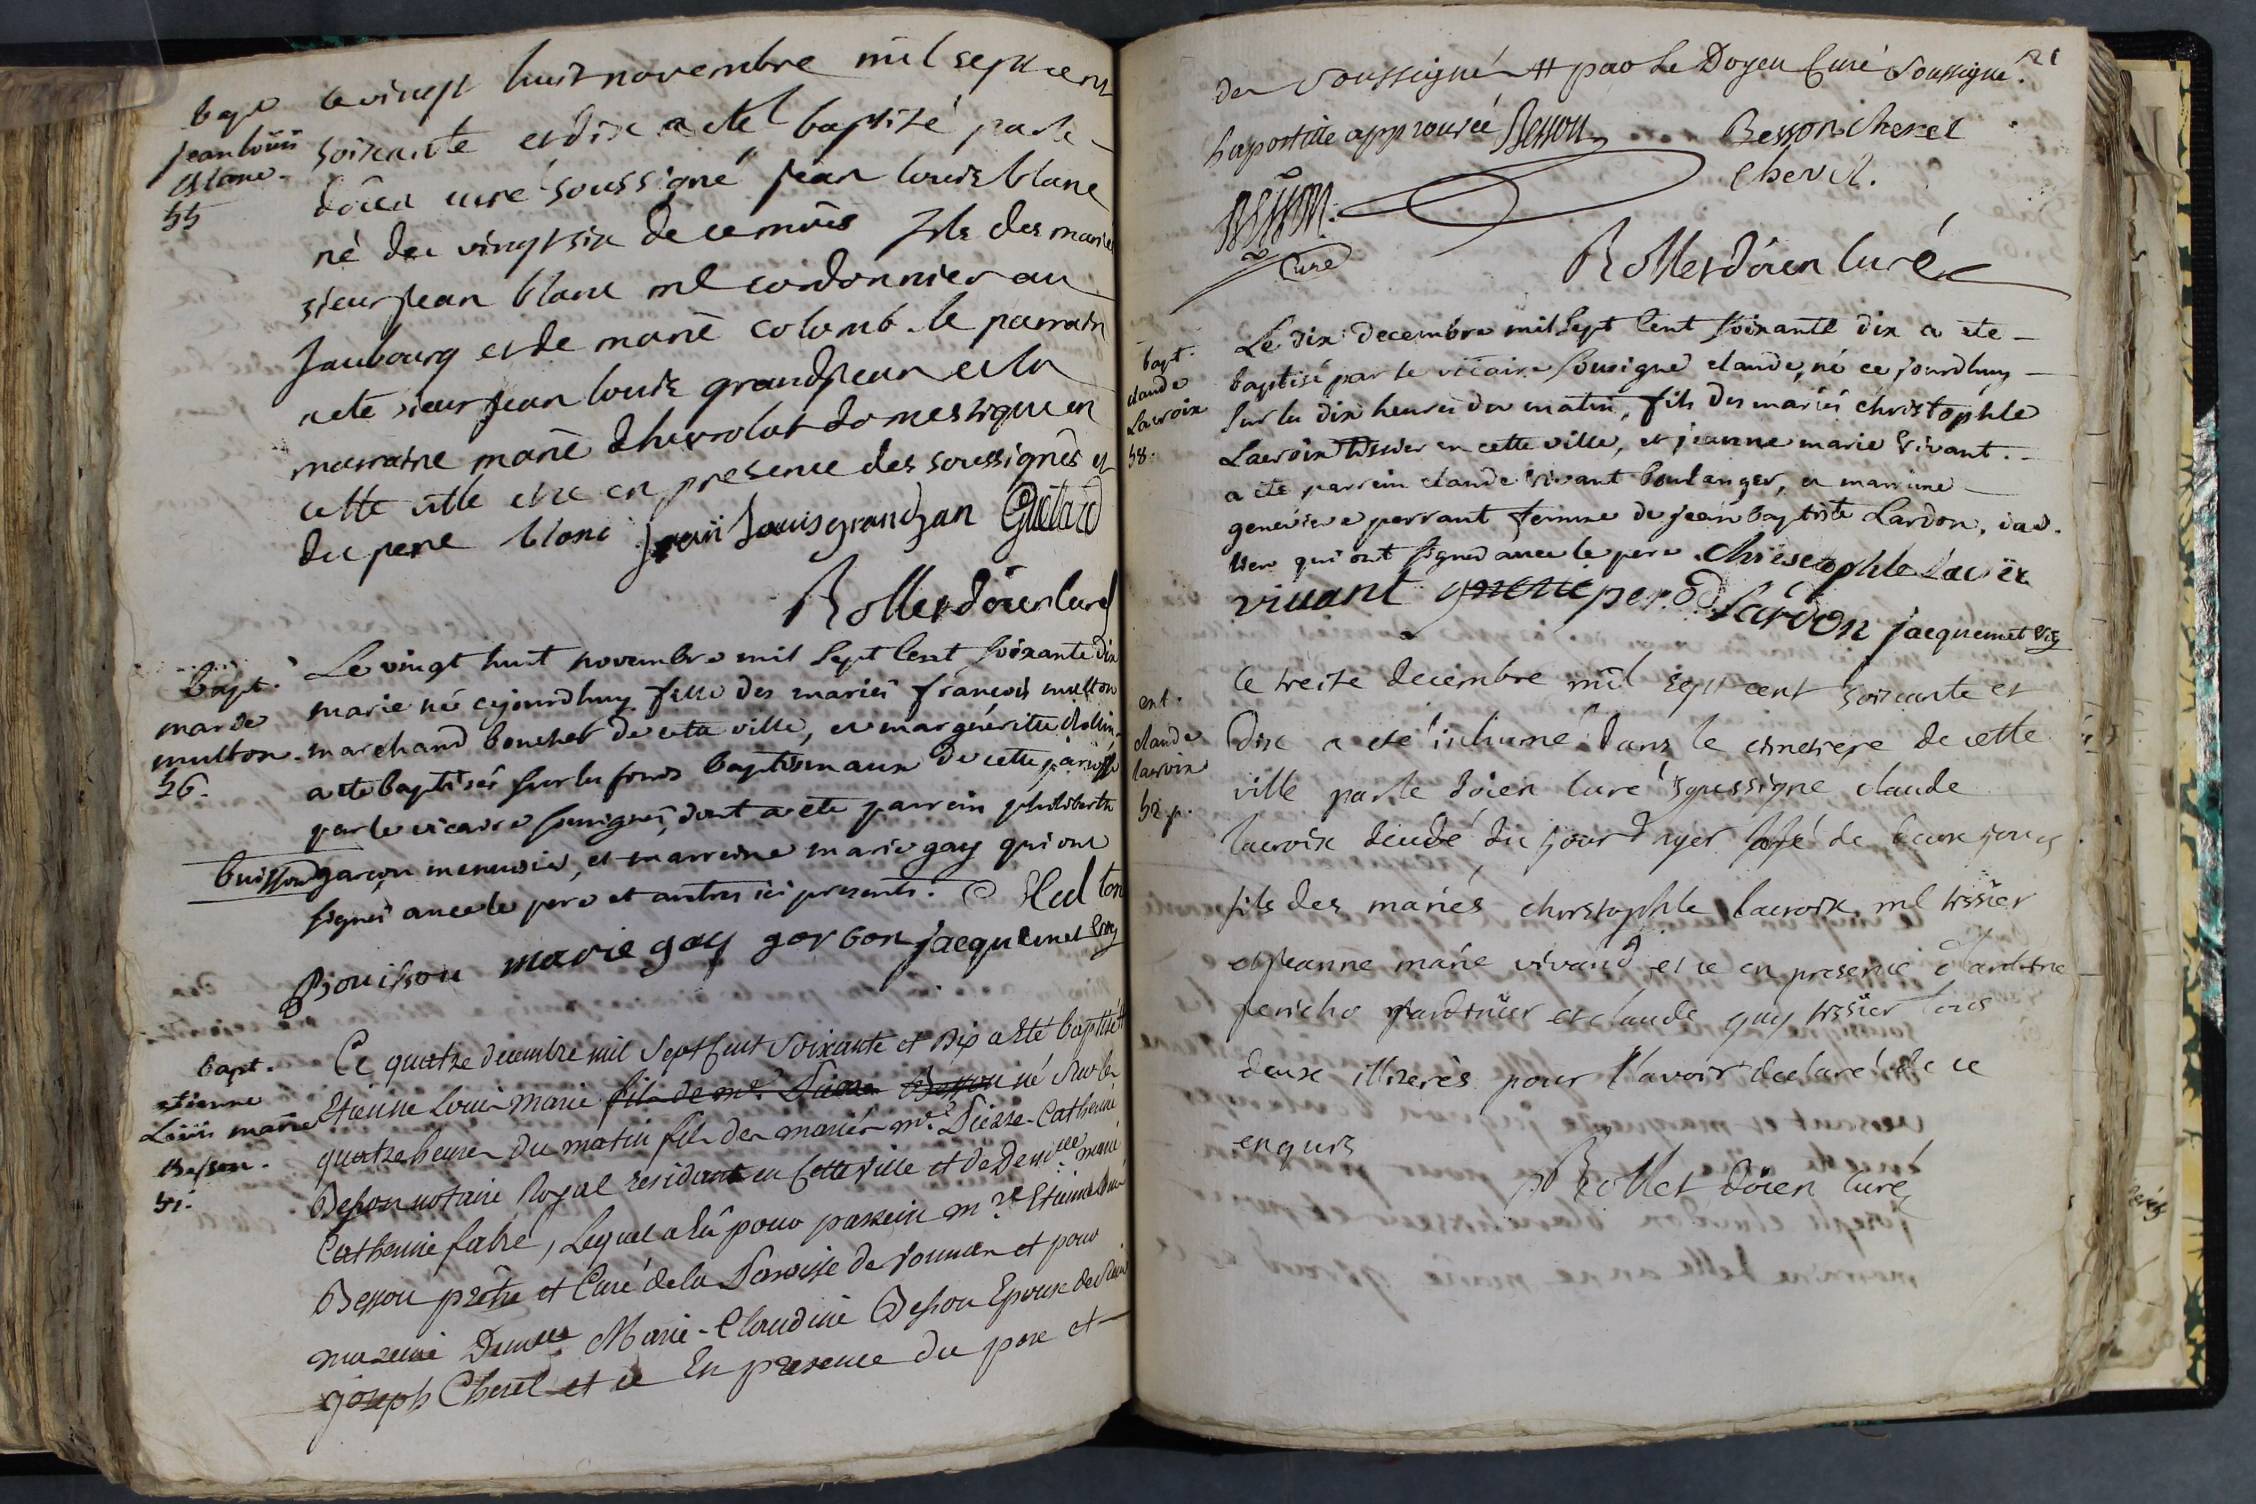 bapt.
jean louis
blanc.
55
le vingt huit novembre mil sept cent
soixante et dix a eté baptisé par le
dôien curé soussigné jean louis blanc
né du vingt six de ce mois fils des mariés
sieur jean blanc me cordonnier au
faubourg et de marie colomb. le parrain
a eté sieur jean louis grandjean et la
marraine marie domestique en
cette ville et ce en presence des soussignés et
du pere blanc jean louis grandjan
Rollet dôien curé
bapt.
marie
multon.
56.
Le vingt huit novembre mil sept cent soixante dix
marie né cejourdhuy fille des mariés françois multon
marchand boucher de cette ville, et marguéritte
a ete baptisés sur les fonds baptismaux de cette paroisse
par le vicaire sousigné, dont a ete parrein philiberth
buisson garçon menuisié, et marreine marie gay qui ont
signés avec le pere et autres ici presents.
Bouisson marie gay gorbon jacquemet vic
bapt.
etienne
Louis marie
Besson.
57.
Ce quatre decembre mil sept cent soixante et dix a eté baptisé #
Etienne Louis marie fils de mre Pierre Besson né sur les
quatre heures du matin fils des mariés mre Pierre-Catherin
Besson notaire Royal residant en cette ville et de Demlle marie
Catherine fabre, Lequel a eû pour parrein mre Etienne
Besson prêtre et Curé de la Paroisse de et pour
mareine Demlle Marie-Claudine Besson Epouse de sieur
joseph Cherel et ce En presence du pere et
21
des Soussignés # par Le Doyen Curé soussigné.
L'apostille approuvée Besson Besson cherel
Cherel.
Curé
Rollet dôien Curé
bapt.
claude
Lacroix
58.
Le dix decembre mil sept cent soixante dix a ete
baptisé par le vicaire sousigné claude, né ce jourdhuy
sur les dix heures du matin, fils des mariés christophle
Lacroix tissier en cette ville, et jeanne marie vivant.
a ete parrein claude vivant boulanger, et marraine
genevieve perrant femme de jean baptiste Lardon,
qui ont signés avec le pere. christophle lacroix
vivant Lardon jacquemet vic
ent.
claude
lacroix
Ce treize decembre mil sept cent soixante et
dix a eté inhumé dans le cimetiere de cette
ville par le dôien curé soussigné claude
lacroix décédé du jour d'hyer agé de deux jours
fils des mariés christophle lacroix me tissier
et jeanne marie vivand et ce en presence d'antoine
jericho jardinier et claude gay tissier tous
deux illiterés pour l'avoir declaré de ce
enquis
Rollet dôien curé